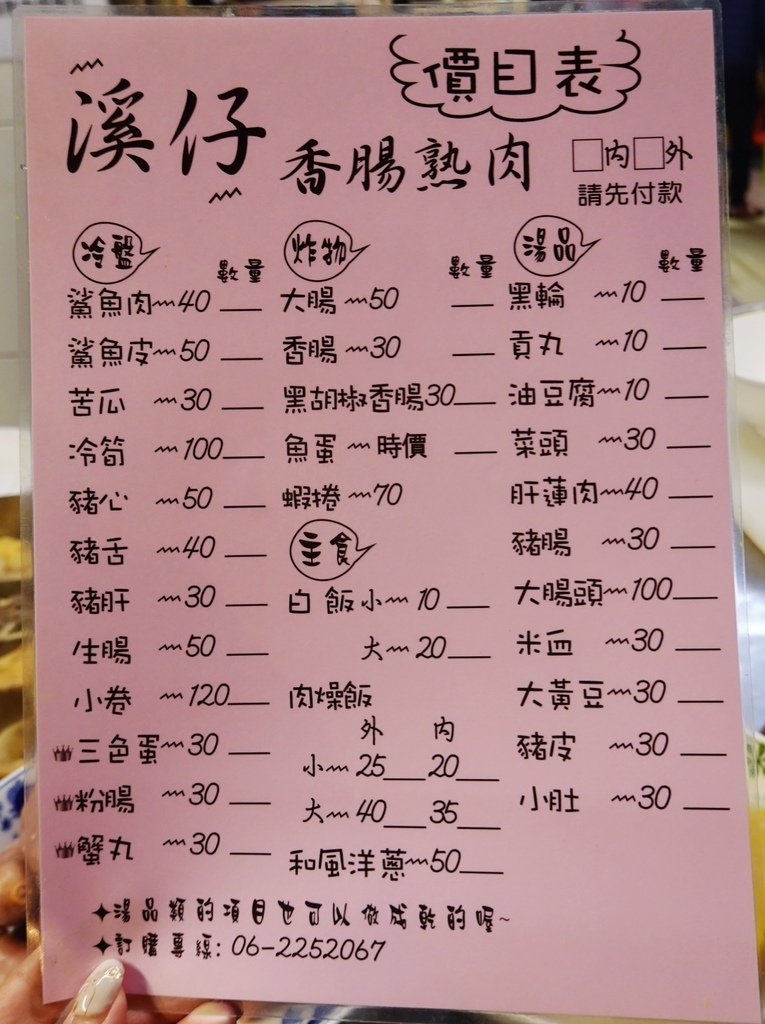 價目表
溪仔
香腸熟肉
□內□外
請先付款
冷盤 數量
鯊魚肉～40
鯊魚皮～50
苦瓜～30
冷筍～100
豬心～50
豬舌～40
豬肝～30
生腸～50
小卷～120
三色蛋～30
粉腸～30
蟹丸～30
炸物 數量
大腸～50
香腸～30
黑胡椒香腸30
魚蛋～時價
蝦捲～70
主食
白飯 小～10
大～20
肉燥飯
外 內
小～25 20
大～40 35
和風洋蔥～50
湯品 數量
黑輪～10
貢丸～10
油豆腐～10
菜頭～30
肝蓮肉～40
豬腸～30
大腸頭～100
米血～30
大黃豆～30
豬皮～30
小肚～30
✦湯品類的項目也可以做成乾的喔~
✦訂購專線: 06-2252067